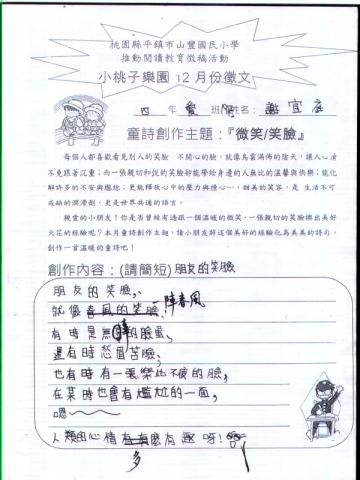 桃園縣平鎮市山豐國民小學
推動閱讀教育徵稿活動
小桃子樂園 12月份徵文
四 年 愛 班 姓名: 謝宜庭
童詩創作主題:『微笑/笑臉』
每個人都喜歡看見別人的笑臉 不開心的臉,就像烏雲滿佈的陰天,讓人心情
不見跟著沉重;而一張親切和悅的笑臉卻能帶給身邊的人無比的溫馨與快樂;能化
解許多的不安與尷尬;更能釋放心中的壓力與擔心…,甜美的笑容,是 生活不可
或缺的潤滑劑,更是世界共通的語言。
親愛的小朋友!你是否曾經有過跟一個溫暖的微笑、一張親切的笑臉擦出美好
火花的經驗呢?本月童詩創作主題,請小朋友將這個美好的經驗化為美美的詩句,
創作一首溫暖的童詩吧!
創作內容:(請簡短) 朋友的笑臉
朋友的笑臉,
就像春風的笑臉 一陣春風
有時是無 的臉蛋,
還有時愁眉苦臉,
也有時有一張樂此不疲的臉,
在某時也會有尷尬的一面,
嗯~~~
人類的心情 有麼有趣呀!
多